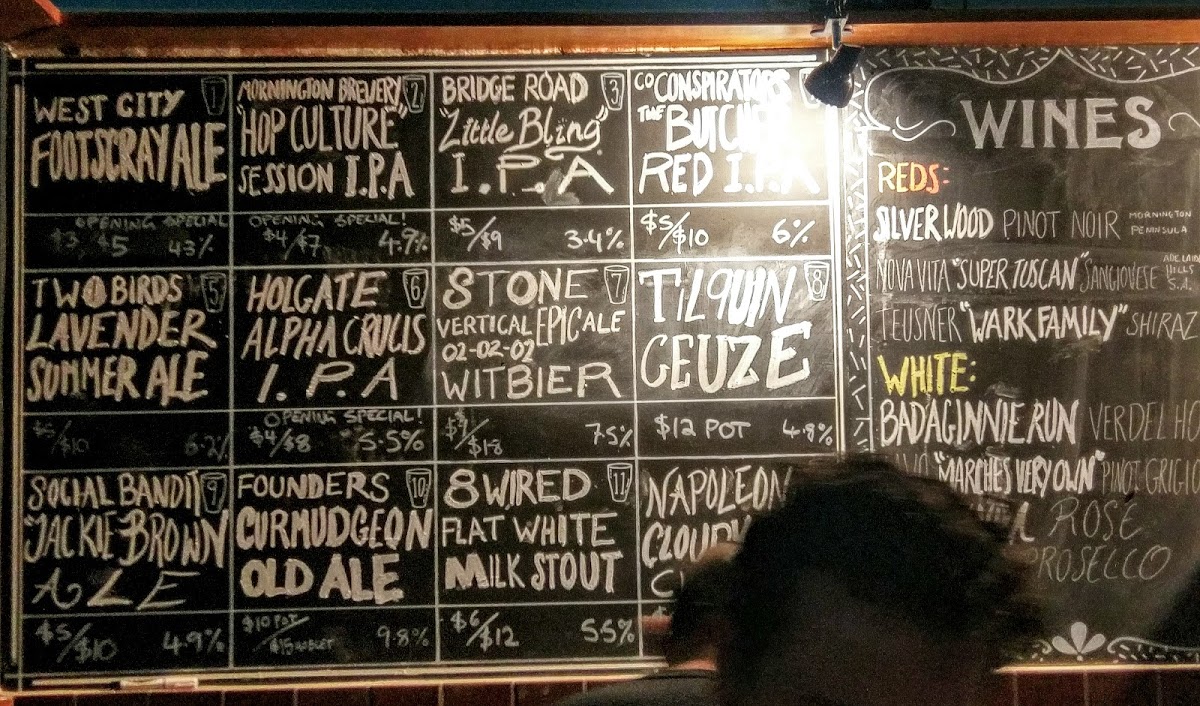 WEST CITY
1
FOOTSCRAY ALE
OPENING SPECIAL
$3 $5 43%
MORNINGTON BREWERY
2
"HOP CULTURE"
SESSION I.P.A
OPENING SPECIAL!
$4/$7 4.9%
BRIDGE ROAD
3
"Little Bling"
I.P.A
$5/$9 3.4%
CO CONSPIRATORS
THE BUTCHER
RED I.P.A
$5/$10 6%
TWO BIRDS
5
LAVENDER
SUMMER ALE
$5/$10 6.2%
HOLGATE
6
ALPHA CRUCIS
I.P.A
OPENING SPECIAL!
$4/$8 5.5%
STONE
7
VERTICAL EPIC ALE
02-02-02
WITBIER
$9/$18 7.5%
TILQUIN
8
GEUZE
$12 POT 4.8%
SOCIAL BANDIT
9
"JACKIE BROWN
ALE
$5/$10 4.9%
FOUNDERS
10
CURMUDGEON
OLD ALE
$10 POT/
$15 GOBLET 9.8%
8 WIRED
11
FLAT WHITE
MILK STOUT
$6/$12 55%
NAPOLEON
CLOUDY
WINES
REDS:
SILVERWOOD PINOT NOIR MORNINGTON
PENINSULA
NOVA VITA "SUPER TUSCAN" SANGIOVESE ADELAIDE
HILLS
S.A.
TEUSNER "WARK FAMILY" SHIRAZ
WHITE:
BADAGINNIE RUN VERDELHO
"MARCHES VERY OWN" PINOT GRIGIO
ROSE
PROSECCO